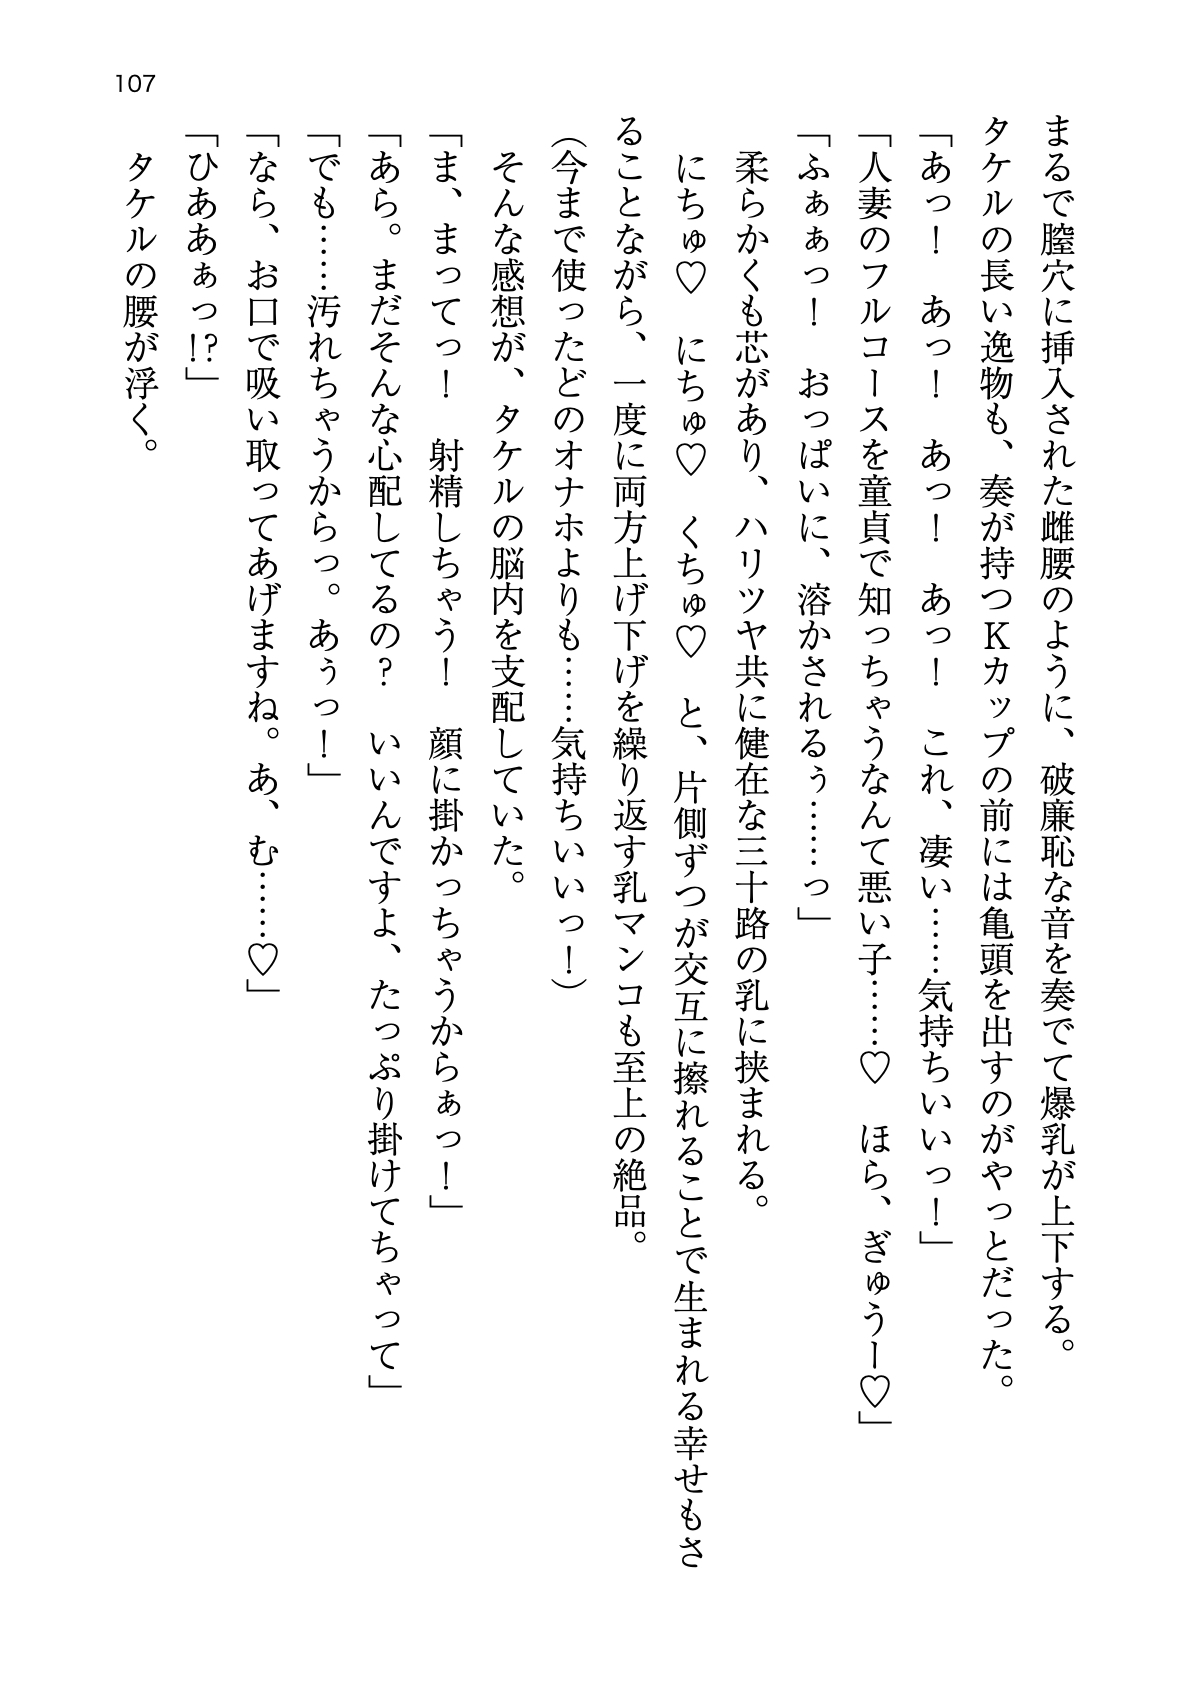 107
まるで膣穴に挿入された雌腰のように、破廉恥な音を奏でて爆乳が上下する。
タケルの長い逸物も、奏が持つKカップの前には亀頭を出すのがやっとだった。
「あっ！　あっ！　あっ！　あっ！　これ、凄い……気持ちいいっ！」
「人妻のフルコースを童貞で知っちゃうなんて悪い子……♡　ほら、ぎゅうー♡」
「ふぁぁっ！　おっぱいに、溶かされるぅ……っ」
　柔らかくも芯があり、ハリツヤ共に健在な三十路の乳に挟まれる。
　にちゅ♡　にちゅ♡　くちゅ♡　と、片側ずつが交互に擦れることで生まれる幸せもさ
ることながら、一度に両方上げ下げを繰り返す乳マンコも至上の絶品。
（今まで使ったどのオナホよりも……気持ちいいっ！）
　そんな感想が、タケルの脳内を支配していた。
「ま、まってっ！　射精しちゃう！　顔に掛かっちゃうからぁっ！」
「あら。まだそんな心配してるの？　いいんですよ、たっぷり掛けてちゃって」
「でも……汚れちゃうからっ。あぅっ！」
「なら、お口で吸い取ってあげますね。あ、む……♡」
「ひああぁっ!?」
　タケルの腰が浮く。